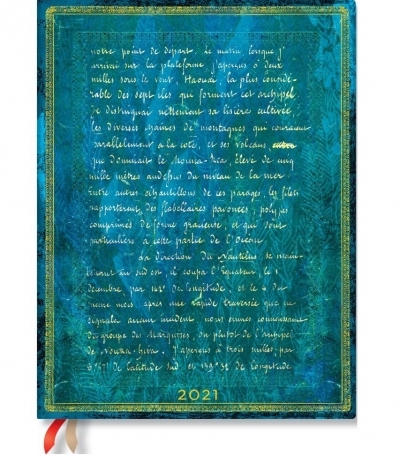 notre point de départ. Le matin lorsque j'
arrivai sur la plateforme j'aperçus à deux
milles sous le vent, Haouai, la plus considé-
rable des sept iles qui forment cet archipel.
Je distinguai nettement sa lisière cultivée,
les diverses chaines de montagnes qui couraient
parallèlement à la côte, et ses volcans,
que dominait le Mouna-Rea, élevé de cinq
mille mètres audessus du niveau de la mer
Entre autres échantillons de ces parages, les filets
rapportèrent des flabellaires pavonées, polypes
comprimés de forme gracieuse, et qui sont
particuliers à cette partie de l'Océan
La direction du Nautilus se main-
tenant au sud est, il coupa l'Equateur, le 1
décembre par 142° de longitude, et le 4 du
même mois, après une rapide traversée que ne
signala aucun incident, nous eumes connaissance
du groupe des Marquises, ou plutot de l'archipel
de Nouka-hiva. J'aperçus à trois milles, par
de latitude sud et 139° 32' de longitude
2021